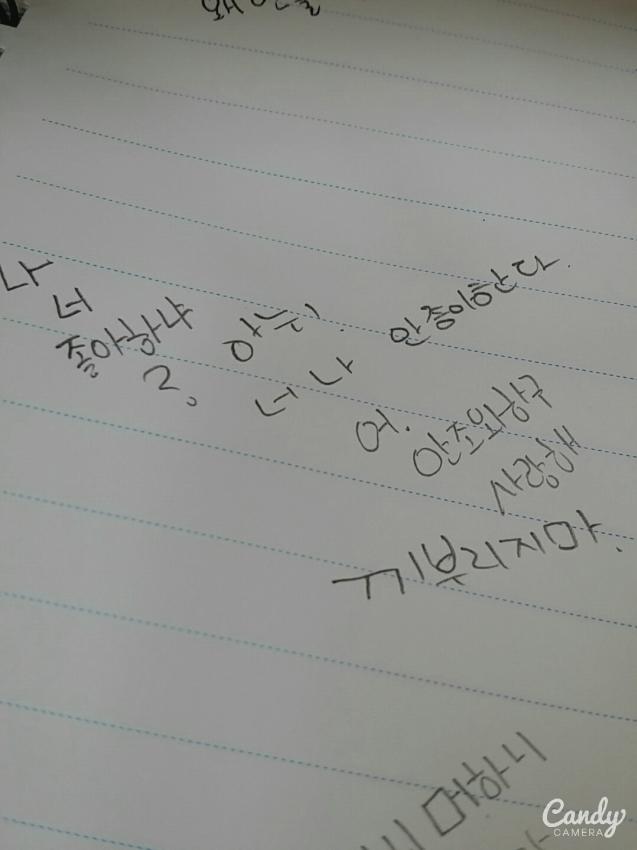 나 너
좋아하냐
?
아니!
너 나
안 좋아한다.
어.
안조와하구
사랑해
끼부리지마.
머하니
Candy
CAMERA